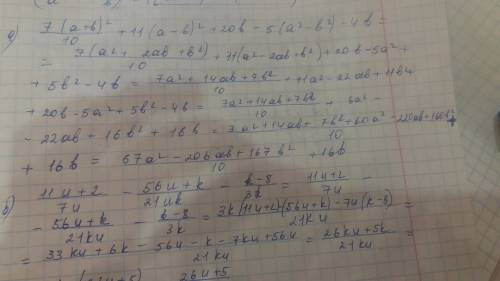 а) 7(a+b)²/10 + 11(a-b)² + 20b - 5(a²-b²) - 4b =
= 7(a²+2ab+b²)/10 + 11(a²-2ab+b²) + 20b - 5a² +
+ 5b² - 4b = 7a²+14ab+7b²/10 + 11a² - 22ab + 11b² +
+ 20b - 5a² + 5b² - 4b = 7a²+14ab+7b²/10 + 6a² -
- 22ab + 16b² + 16b = 7a²+14ab+7b²+60a²-220ab+160b²/10 +
+ 16b = 67a²-206ab+167b²/10 + 16b
б) 11u+2/7u - 56u+k/21uk - k-8/3k = 11u+2/7u -
- 56u+k/21ku - k-8/3k = 3k(11u+2)-(56u+k)-7u(k-8)/21ku =
= 33ku+6k-56u-k-7ku+56u/21ku = 26ku+5k/21ku =
26u+5